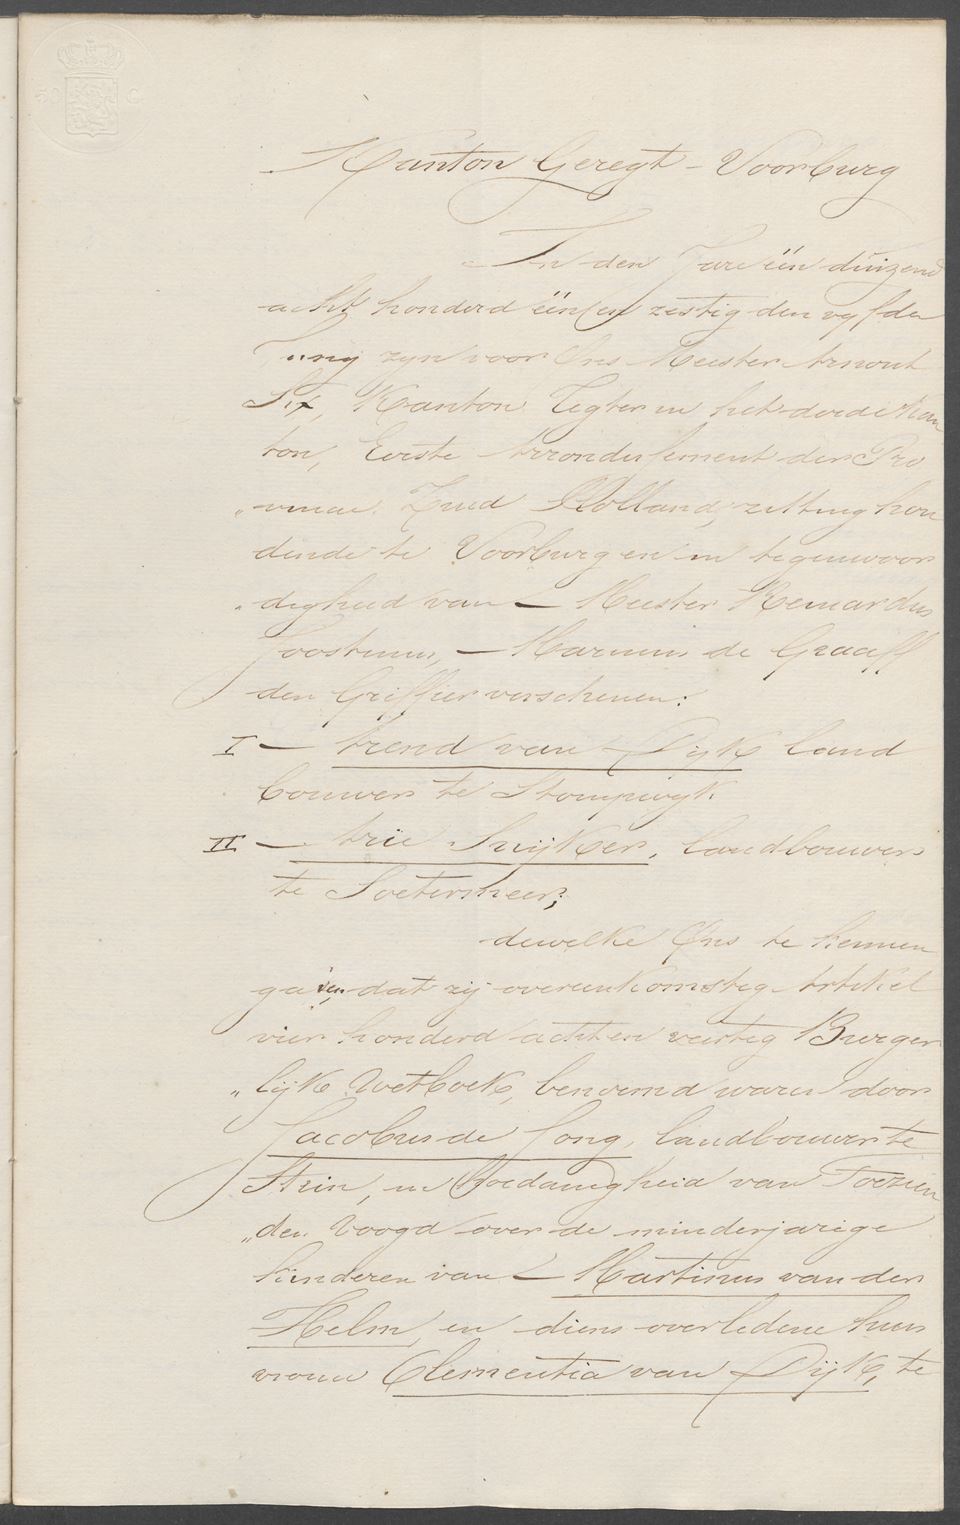 Kanton Geregt - Voorburg
In den Jare één duizend
acht honderd één en zestig den vyfden
Juny zyn voor Ons Meester Arnout
Six, Kanton Regter in het derde Kan
ton, Eerste Arrondissement der Pro
„vincie Zuid Holland, zitting hou
dende te Voorburg en in tegenwoor
„digheid van – Meester
Joostinus, – Marinus de Graaff
den Griffier verschenen:
I – Arend van Dijk land
bouwer te Stompwyk
II – Arie Suijker, landbouwer
te Soetermeer;
dewelke Ons te kennen
gaven, dat zij overeenkomstig Artikel
vier honderd acht en veertig Burger
„lijk Wetboek, benoemd waren door
Jacobus de Jong, landbouwer te
Stein, in hoedanigheid van Toezien
„den Voogd over de minderjarige
kinderen van – Martinus van der
Helm, en diens overledene huis
vrouw Clementia van Dijk, te